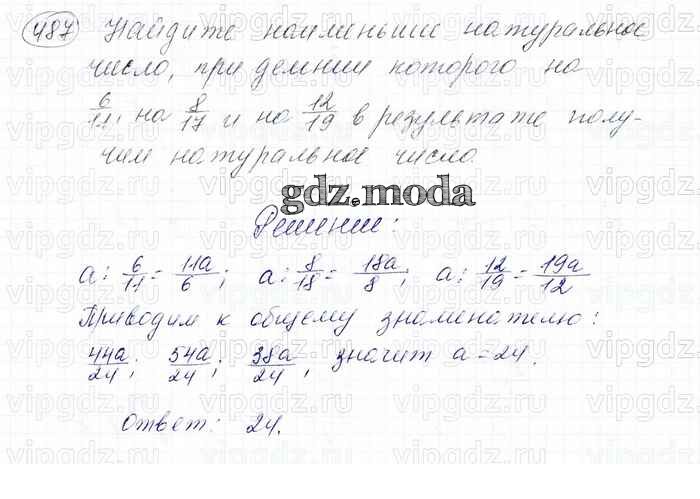 487 Найдите наименьшее натуральное
число, при делении которого на
6/11, на 8/17 и на 12/19 в результате полу-
чим натуральное число.
gdz.moda
Решение:
a : 6/11 = 11a/6 ; a : 8/18 = 18a/8 ; a : 12/19 = 19a/12
Приводим к общему знаменателю:
44a/24 ; 54a/24 ; 38a/24 ; значит a = 24.
Ответ: 24.
vipgdz.ru